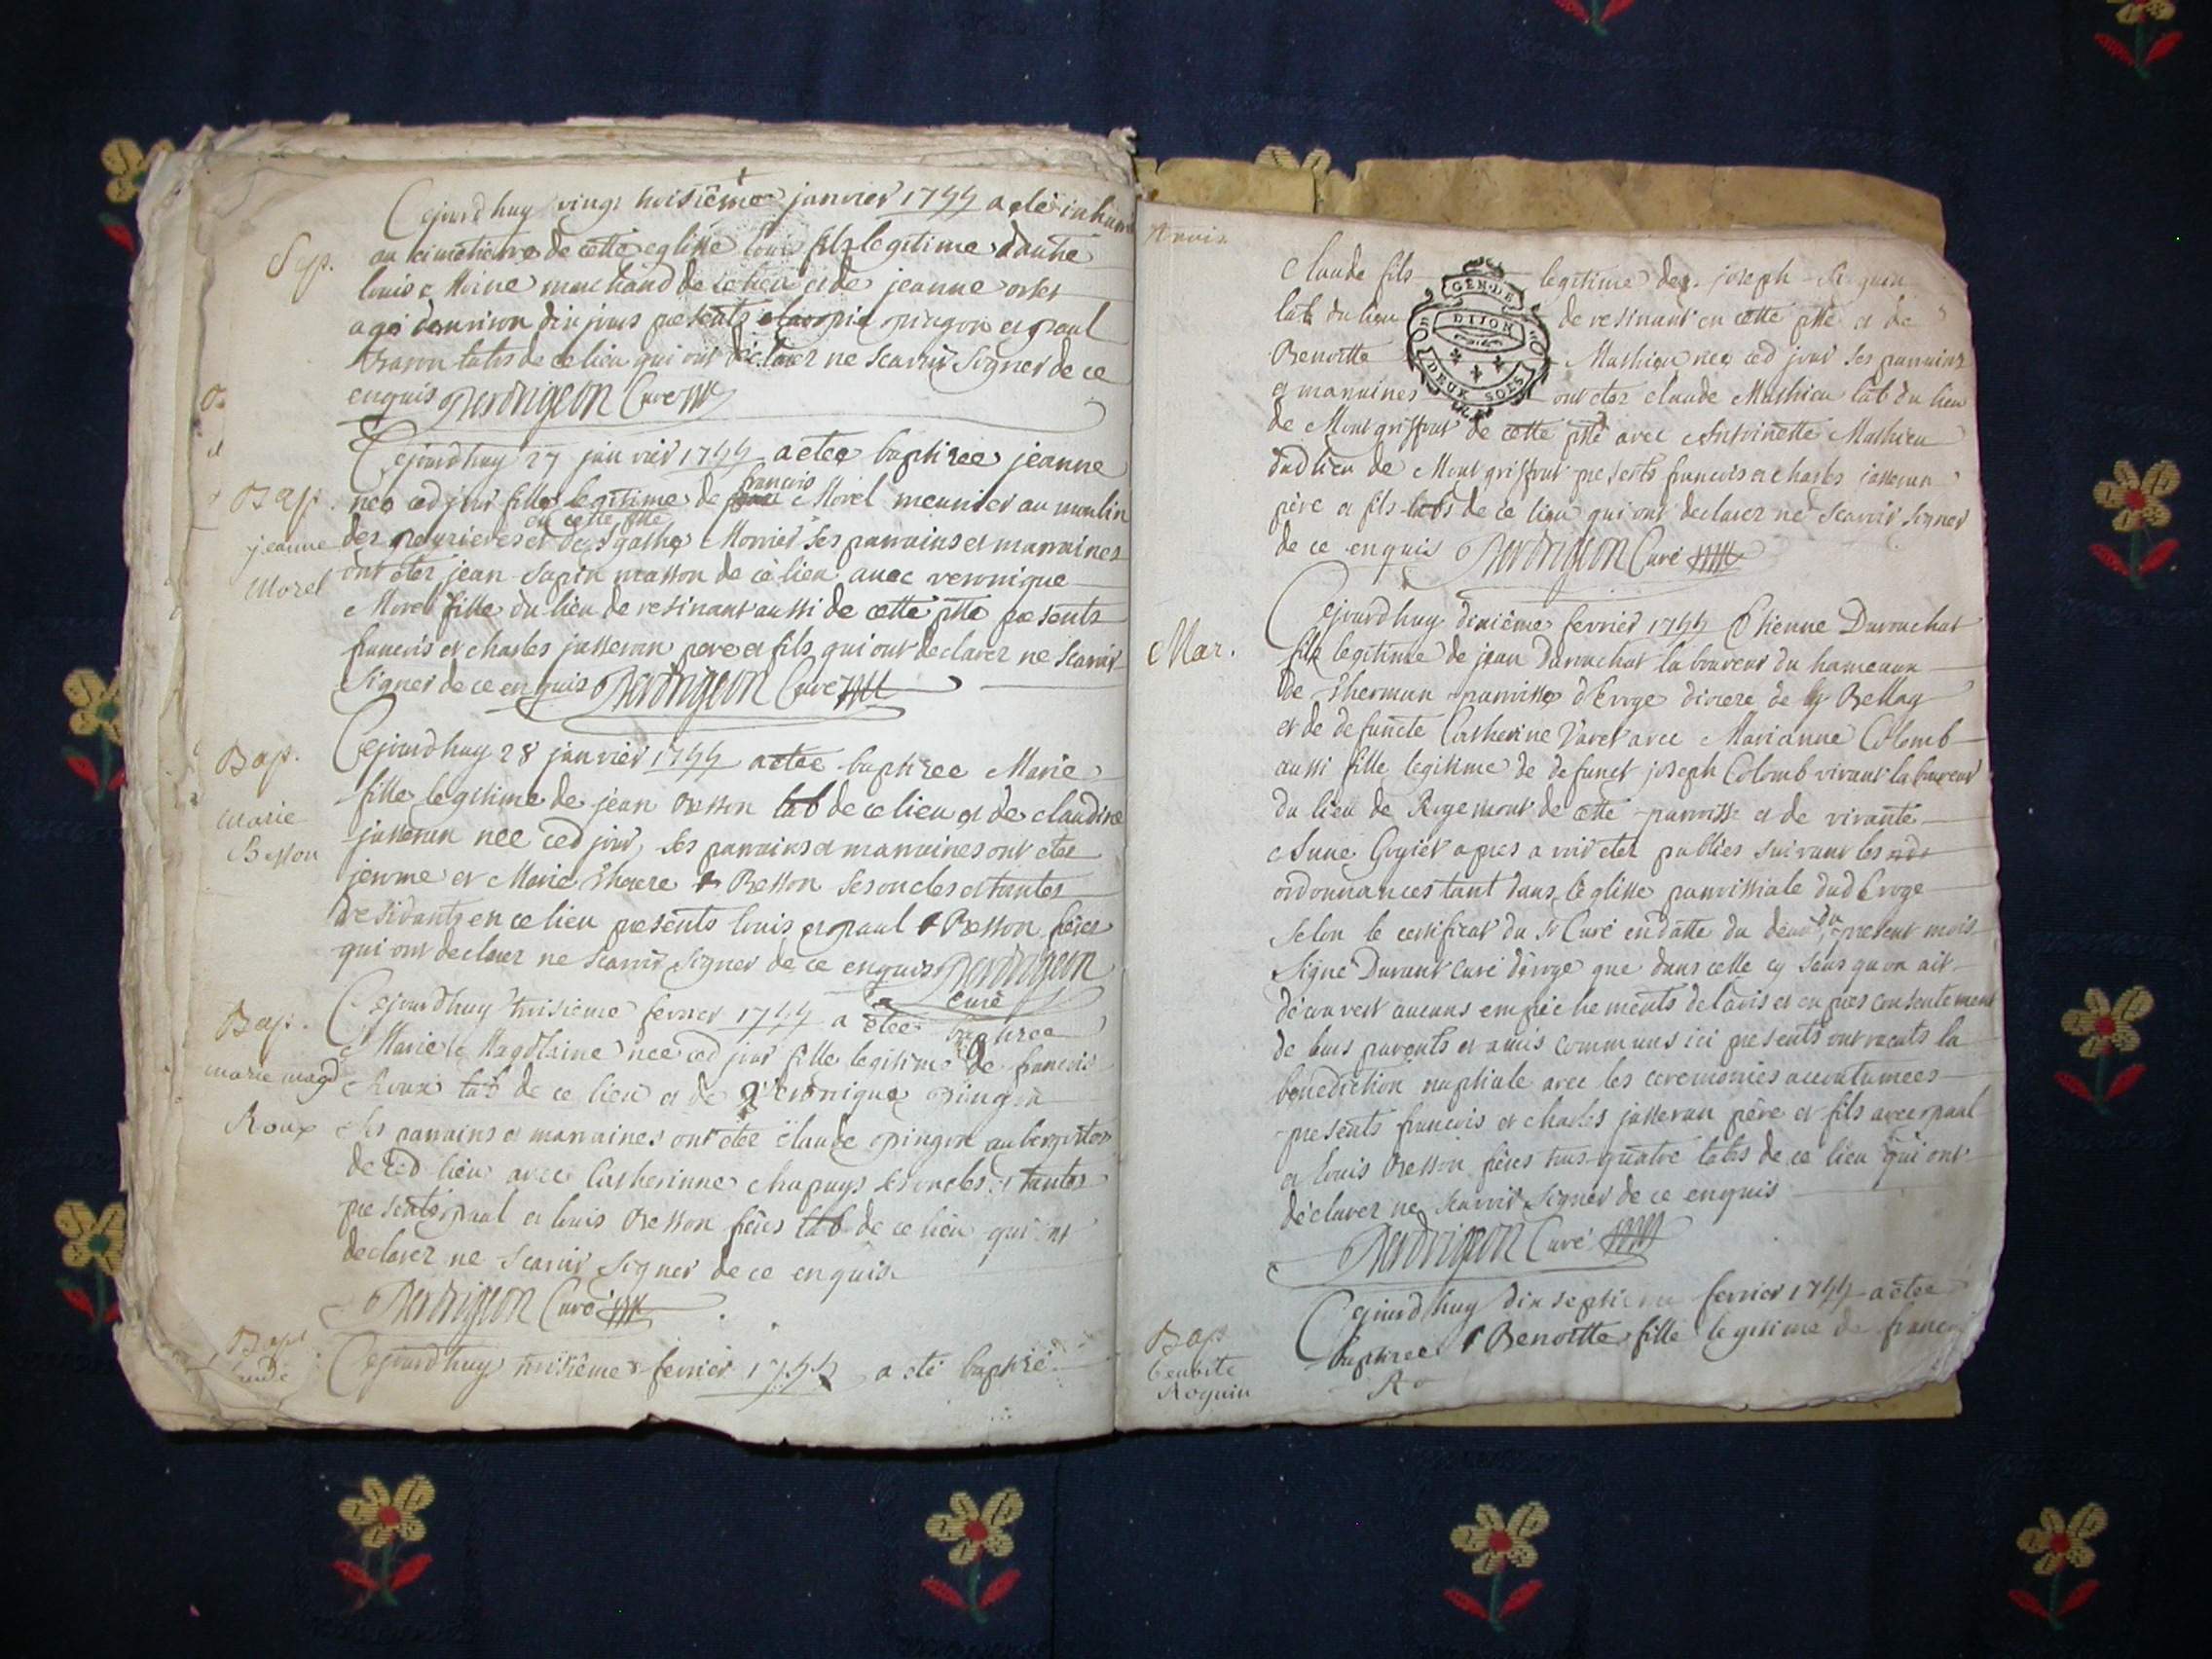 Cejourdhuy vingt troisième janvier 1744 a été inhumé
Sep.
au cimetierre de cette eglisse louis fils legitime dautre
louis Moine marchand de ce lieu et de jeanne
agé denviron dix jours presents pingon et paul
labrs de ce lieu qui ont déclarer ne scavoir signer de ce
enquis Perdrigeon Curé
Cejourdhuy 27 janvier 1744 a etee baptisee jeanne
Bap.
jeanne
Morel
francois
nee ced jour fille legitime de Morel meunier au moulin
en cette psse
des et de Agathe Monnier ses parrains et marraines
ont eter jean Sapin masson de ce lieu avec veronique
Morel fille du lieu de resinant aussi de cette psse presents
francois et charles jasseran pere et fils qui ont declarer ne scavoir
signer de ce enquis Perdrigeon Curé
Bap.
marie
Besson
Cejourdhuy 28 janvier 1744 a etee baptisee Marie
fille legitime de jean Besson lab de ce lieu et de claudine
jasseran nee ced jour, ses parrains et marraines ont eter
jerome et Marie therese Besson ses oncles et tantes
residants en ce lieu presents louis et paul Besson frères
qui ont declarer ne scavoir signer de ce enquis Perdrigeon
curé
Bap.
marie magd
Roux
Cejourdhuy troisieme fevrier 1744 a etee baptisee
Marie Magdelaine nee ced jour fille legitime de francois
Roux lab de ce lieu et de Veronique pingon
ses parrains et marraines ont eter claude pingon aubergiste
de ced lieu avec Catherinne chapuys ses oncles et tantes
presents paul et louis Besson frères lab de ce lieu qui ont
declarer ne scavoir signer de ce enquis
Perdrigeon Curé
Bapt
Cejourdhuy fevrier 1744 a été baptisé
Claude fils legitime de joseph
lab du lieu de resinant en cette psse et de
Benoitte Mathieu nee ced jour ses parrains
et marraines ont eter claude Mathieu lab du lieu
GEN. DE
DIJON
DEUX SOLS
de Montgriffont de cette psse avec Antoinette Mathieu
dud lieu de Montgriffont presents francois et charles jasseran
père et fils labs de ce lieu qui ont declarer ne scavoir signer
de ce enquis Perdrigeon Curé
Mar.
Cejourdhuy dixième fevrier 1744 Etienne Durouchat
fils legitime de jean Durouchat laboureur du hameaux
de parroisse d'Evoge diocese de Bellay
et de defuncte Catherine Varet avec Marianne Colomb
aussi fille legitime de defunct joseph Colomb vivant laboureur
du lieu de Rogemont de cette parroisse et de vivante
Anne après avoir eter publies suivant les
ordonnances tant dans l'eglisse parroissiale dud Evoge
selon le certificat du Sr Curé en datte du du present mois
signé Durant curé d'evoge que dans celle cy sans qu'on ait
découvert aucuns empechements de lavis et exprès consentement
de leurs parents et amis communs ici presents ont recuts la
benediction nuptiale avec les ceremonies accoutumees
presents francois et charles jasseran père et fils avec paul
et louis Besson frères tous quatre labrs de ce lieu qui ont
déclarer ne scavoir signer de ce enquis
Perdrigeon Curé
Bap
benoite
Roguin
Cejourdhuy dix septieme fevrier 1744 a etee
baptisee Benoitte fille legitime de francois